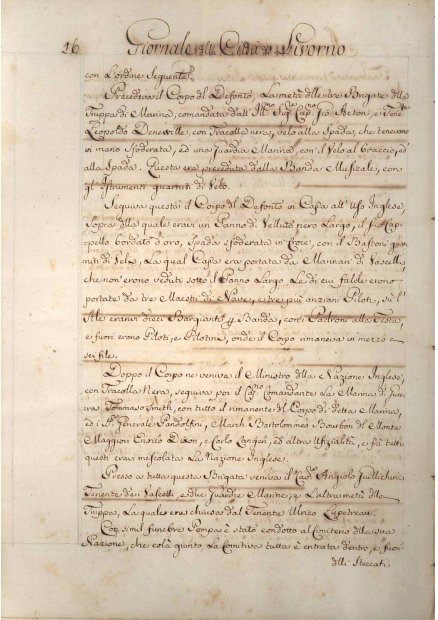 16 Giornale della Città di Livorno
con l'ordine seguente.
Precedeva il Corpo del Defonto, La metà delle tre Brigate della
Truppa di Marina, comandata dall' Ill.mo Sig.re Cap.no Gio. Acton, e Tene.te
Leopoldo Deneville, con Tracolla nera, velo alla Spada, che tenevano
in mano sfoderata, ed una guardia Marina, con il Velo al braccio, ed
alla Spada. Questa era preceduta dalla Banda Musicale, con
gl' Istrumenti guarniti di Velo.
Seguiva questa il Corpo del Defonto in Cassa all' Uso Inglese,
sopra della quale eravi un Panno di Velluto nero Largo, il suo Cap-
pello bordato d'oro, Spada sfoderata in Croce, con il Bastone guar-
niti di Velo, La qual Cassa era portata da Marinari di Vascello,
che non erono veduti sotto il Panno Largo Le di cui falde erono
portate da tre Maestri di Nave, e tre più anziani Piloti, si l'
Ale eranvi dieci Bargianti p. Banda, con i Padroni alla Testa,
e fuori erono Piloti, e Pilotini, onde il Corpo rimaneva in mezzo a
sei file.
Doppo il Corpo ne veniva il Ministro della Nazione Inglese
con Tracolla Nera, seguiva poi il Cap.no Comandante La Marina di Guer-
ra Tommaso Smith, con tutto il rimanente del Corpo di detta Marina,
ed i S. Generale Pandolfini, March. Bartolomeo Bourbon del Monte
Maggiori Enrico, e Carlo, ed altra Ufizialità, e fra tutti
questi eravi mescolata La Nazione Inglese.
Presso a tutta questa Brigata veniva il Cap.no Angiolo
Tenente dei Vascelli, e due Guardie Marine, e L'altra metà della
Truppa, La quale era chiusa dal Tenente Ulrico
Con simil funebre Pompa è stato condotto al Cimitero della sua
Nazione, che colà giunto La Comitiva tutta è entrata dentro, e fuori
delli Steccati